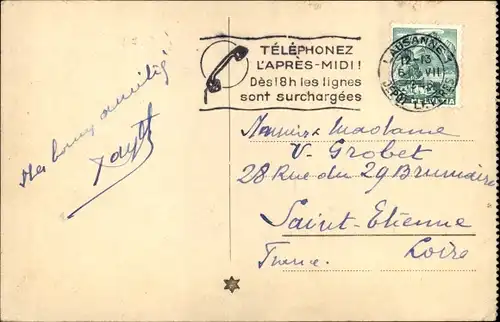 TÉLÉPHONEZ
L'APRÈS-MIDI!
Dès 18h les lignes
sont surchargées
LAUSANNE 1
12-13
VII
Mes bonnes amitiés
Monsieur & Madame
V. Grobet
28 Rue du 29 Brumaire
Saint-Etienne
Loire
France.